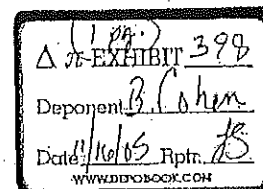 (1 pg.)
Δ π-EXHIBIT 398
Deponent B. Cohen
Date 11/16/05 Rptr. JB
WWW.DEPOBOOK.COM